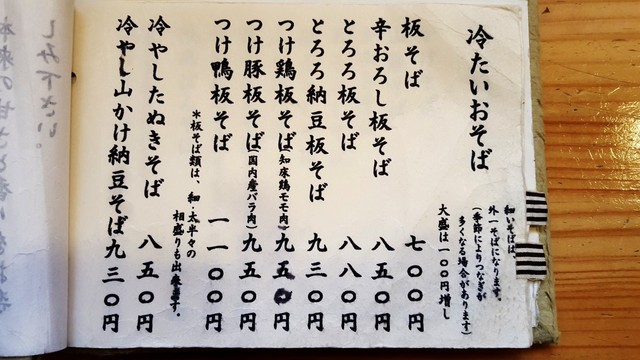 冷たいおそば
細いそばは、
外一そばになります。
(季節によりつなぎが
多くなる場合があります)
大盛は一〇〇円増し
板そば 七〇〇円
辛おろし板そば 八五〇円
とろろ板そば 八八〇円
とろろ納豆板そば 九三〇円
つけ鶏板そば(知床鶏モモ肉) 九五〇円
つけ豚板そば(国内産バラ肉) 九五〇円
つけ鴨板そば 一一〇〇円
*板そば類は、細・太半々の
相盛りも出来ます。
冷やしたぬきそば 八五〇円
冷やし山かけ納豆そば 九三〇円
しみ下さい。